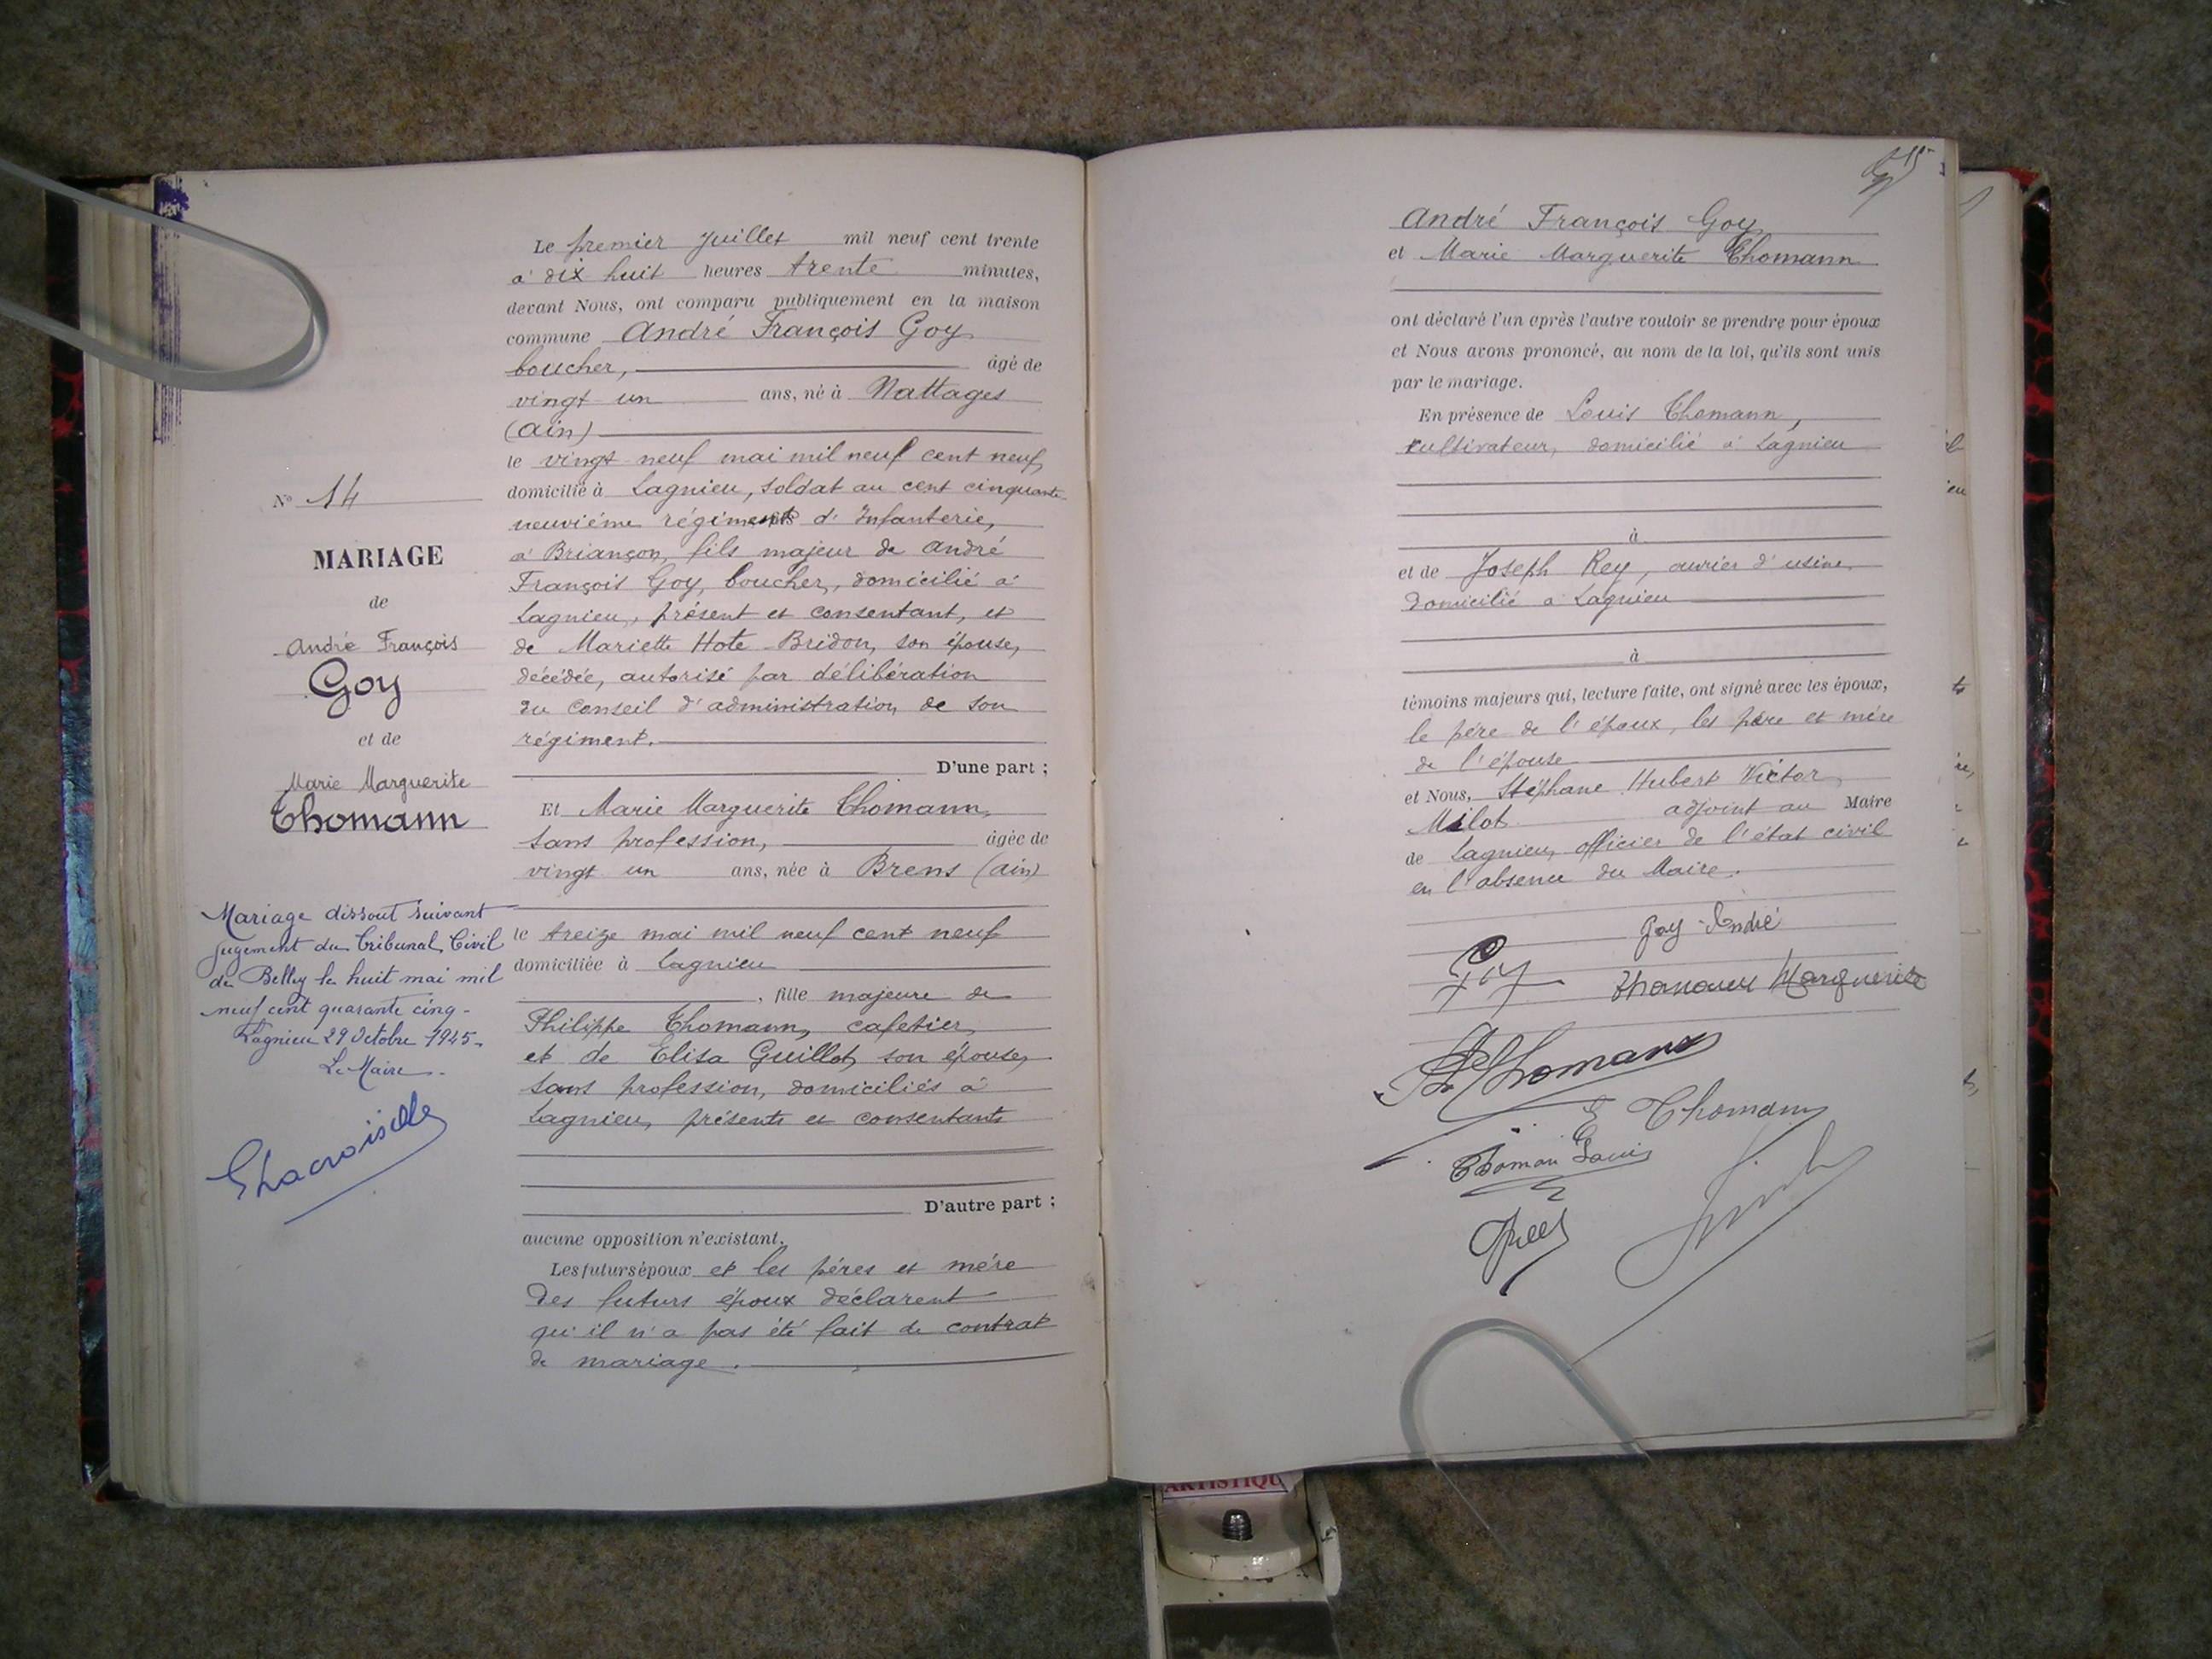 Le premier Juillet mil neuf cent trente
à dix huit heures trente minutes,
devant Nous, ont comparu publiquement en la maison
commune André François Goy
boucher, âgé de
vingt un ans, né à Nattages
(Ain)
le vingt neuf mai mil neuf cent neuf,
domicilié à Lagnieu, soldat au cent cinquante
neuvième régiment d'Infanterie,
à Briançon, fils majeur de André
François Goy, boucher, domicilié à
Lagnieu, présent et consentant, et
de Mariette Hote-Bridon, son épouse,
décédée, autorisé par délibération
du Conseil d'administration de son
régiment.
D'une part ;
Et Marie Marguerite Thomann,
sans profession, âgée de
vingt un ans, née à Brens (Ain)
le treize mai mil neuf cent neuf
domiciliée à Lagnieu
, fille majeure de
Philippe Thomann, cafetier,
et de Elisa Guillot, son épouse,
sans profession, domiciliés à
Lagnieu, présents et consentants
D'autre part ;
aucune opposition n'existant.
Les futurs époux et les pères et mère
des futurs époux déclarent
qu'il n'a pas été fait de contrat
de mariage.
N° 14
MARIAGE
de
André François
Goy
et de
Marie Marguerite
Thomann
Mariage dissout suivant
jugement du Tribunal Civil
de Belley le huit mai mil
neuf cent quarante cinq -
Lagnieu 29 Octobre 1945 -
Le Maire -
André François Goy
et Marie Marguerite Thomann
ont déclaré l'un après l'autre vouloir se prendre pour époux
et Nous avons prononcé, au nom de la loi, qu'ils sont unis
par le mariage.
En présence de Louis Thomann,
cultivateur, domicilié à Lagnieu
à
et de Joseph Rey, ouvrier d'usine,
domicilié à Lagnieu
à
témoins majeurs qui, lecture faite, ont signé avec les époux,
le père de l'époux, les père et mère
de l'épouse
et Nous, Stéphane Hubert Victor
Milot adjoint au Maire
de Lagnieu, officier de l'état civil
en l'absence du Maire.
Goy André
Goy
Thomann Marguerite
Ph Thomann
E Thomann
Thoman Louis
ARTISTIQU